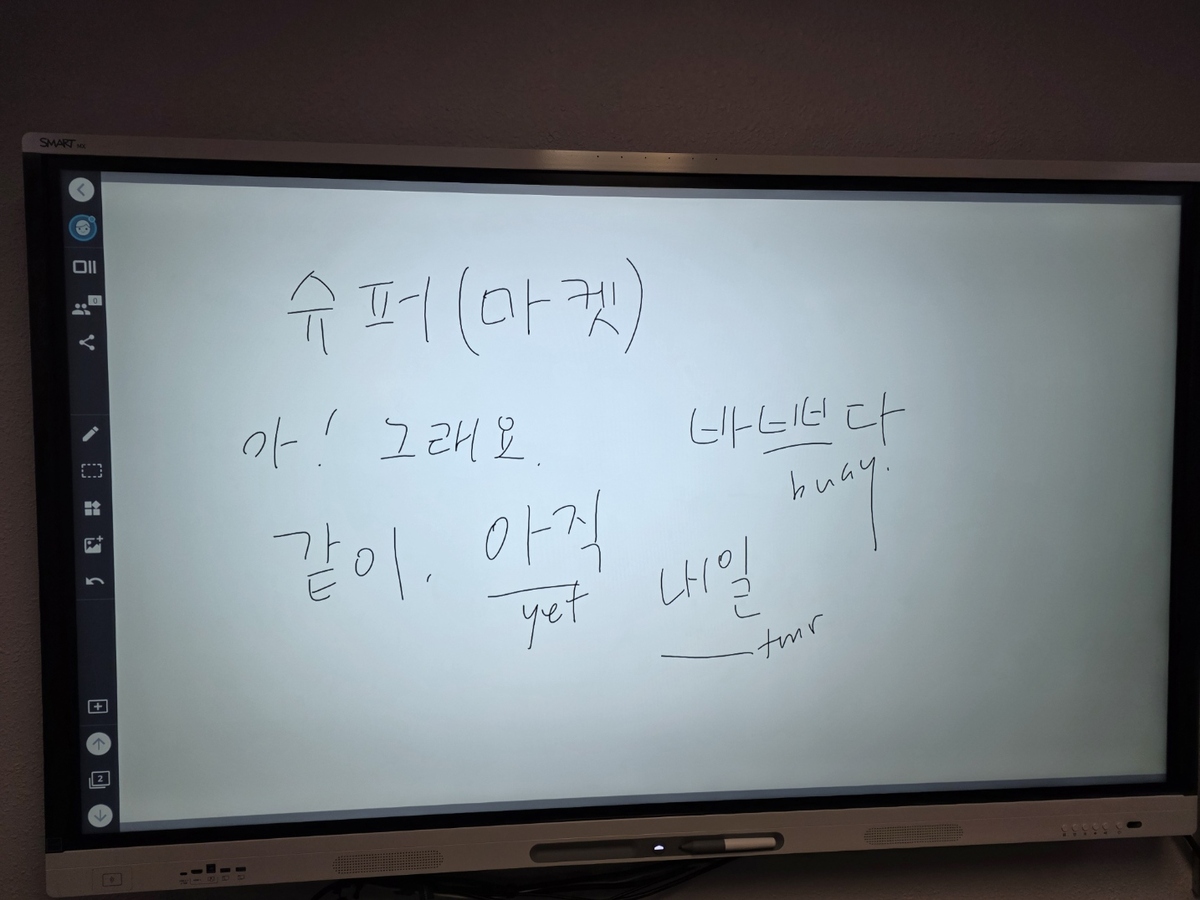 SMART MX
0
슈퍼(마켓)
아! 그래요.
바쁘다
busy.
같이.
아직
yet
내일
tmr
2